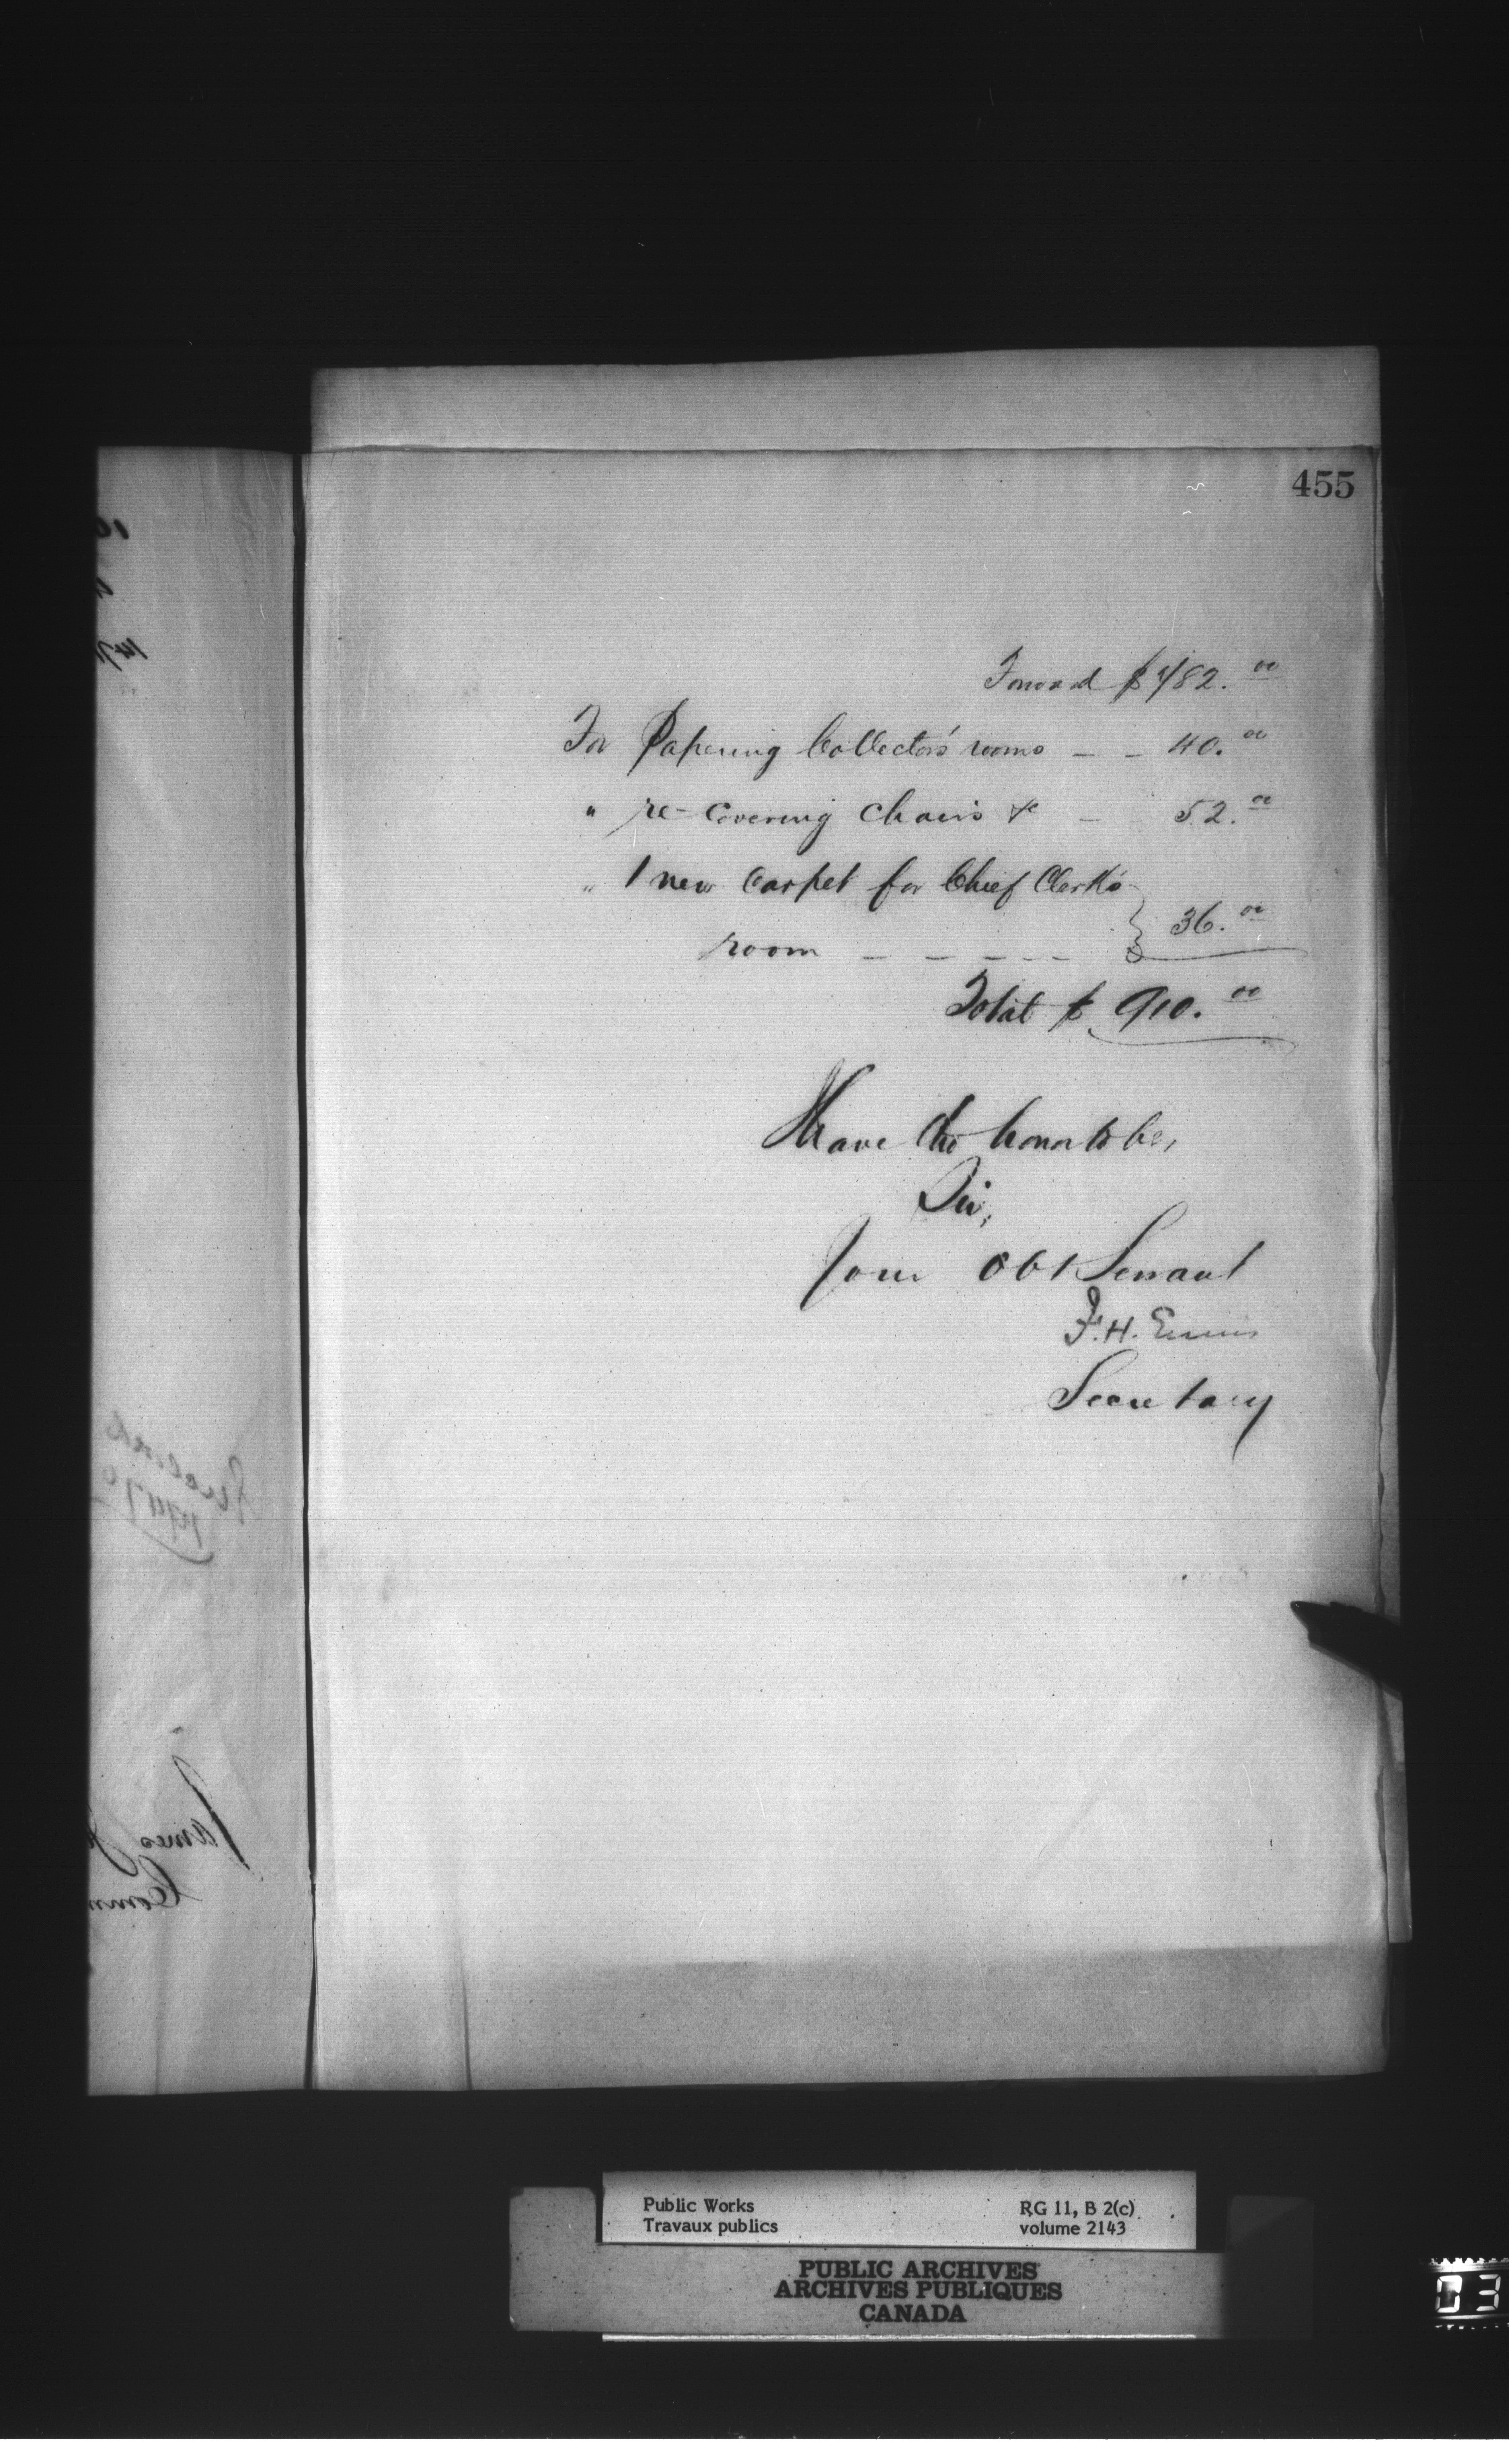 455
Forward $ 782.00
For Papering Collector's rooms _ _ 40.00
" re-covering chairs &c _ 52.00
" 1 new Carpet for Chief Clerk's
room _ _ _ _ } 36.00
Total $ 910.00
I have the honor to be,
Sir,
Your Obt Servant
F.H. Ennis
Secretary
James
Public Works
Travaux publics
RG 11, B 2(c)
volume 2143
PUBLIC ARCHIVES
ARCHIVES PUBLIQUES
CANADA